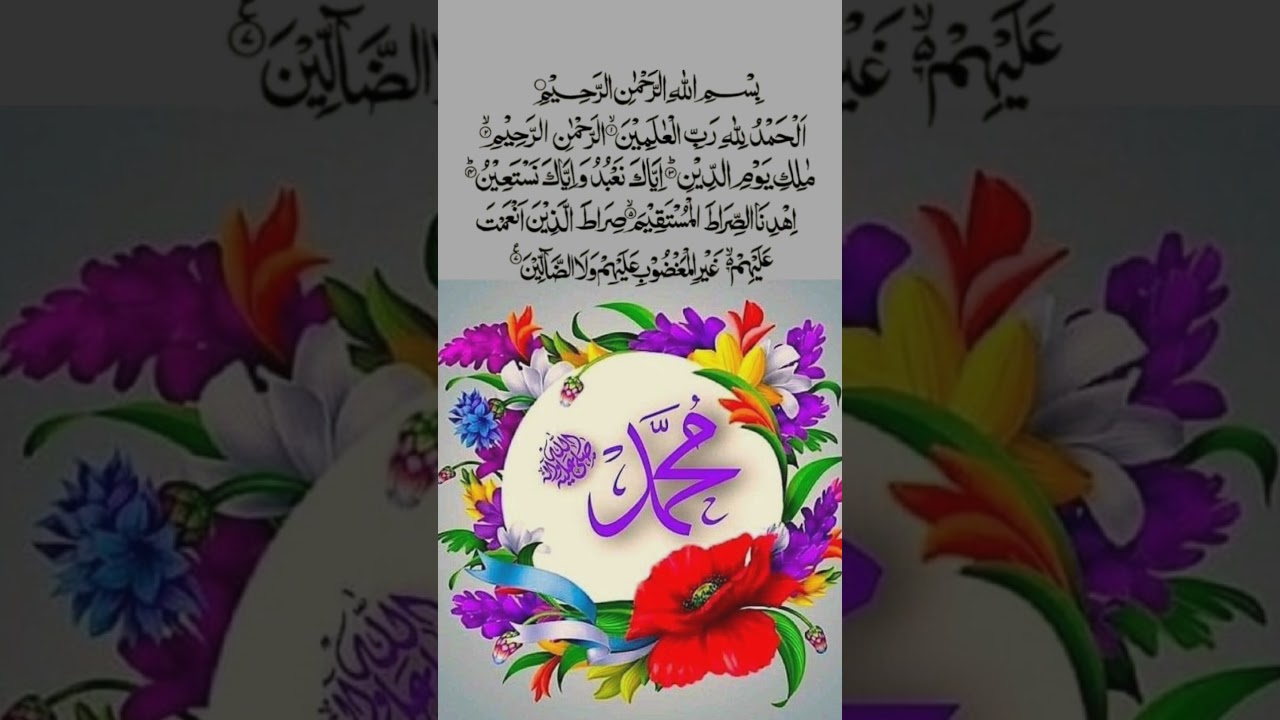 بِسْمِ اللهِ الرَّحْمٰنِ الرَّحِيْمِ
اَلْحَمْدُ لِلّٰهِ رَبِّ الْعٰلَمِيْنَ ۙ۱ الرَّحْمٰنِ الرَّحِيْمِ ۙ۲
مٰلِكِ يَوْمِ الدِّيْنِ ؕ۳ اِيَّاكَ نَعْبُدُ وَاِيَّاكَ نَسْتَعِيْنُ ؕ۴
اِهْدِنَا الصِّرَاطَ الْمُسْتَقِيْمَ ۙ۵ صِرَاطَ الَّذِيْنَ اَنْعَمْتَ
عَلَيْهِمْ ۙ۶ غَيْرِ الْمَغْضُوْبِ عَلَيْهِمْ وَلَا الضَّآلِّيْنَ ۷
مُحَمَّد
صلى الله عليه وآله
عَلَيْهِمْ ۙ غَيْ
لاالضَّآلِّيْنَ ۷